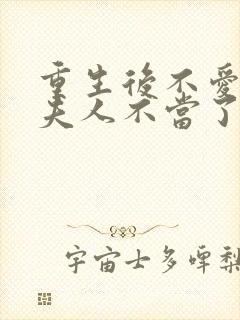 重生後不愛
夫人不當了
宇宙士多啤梨